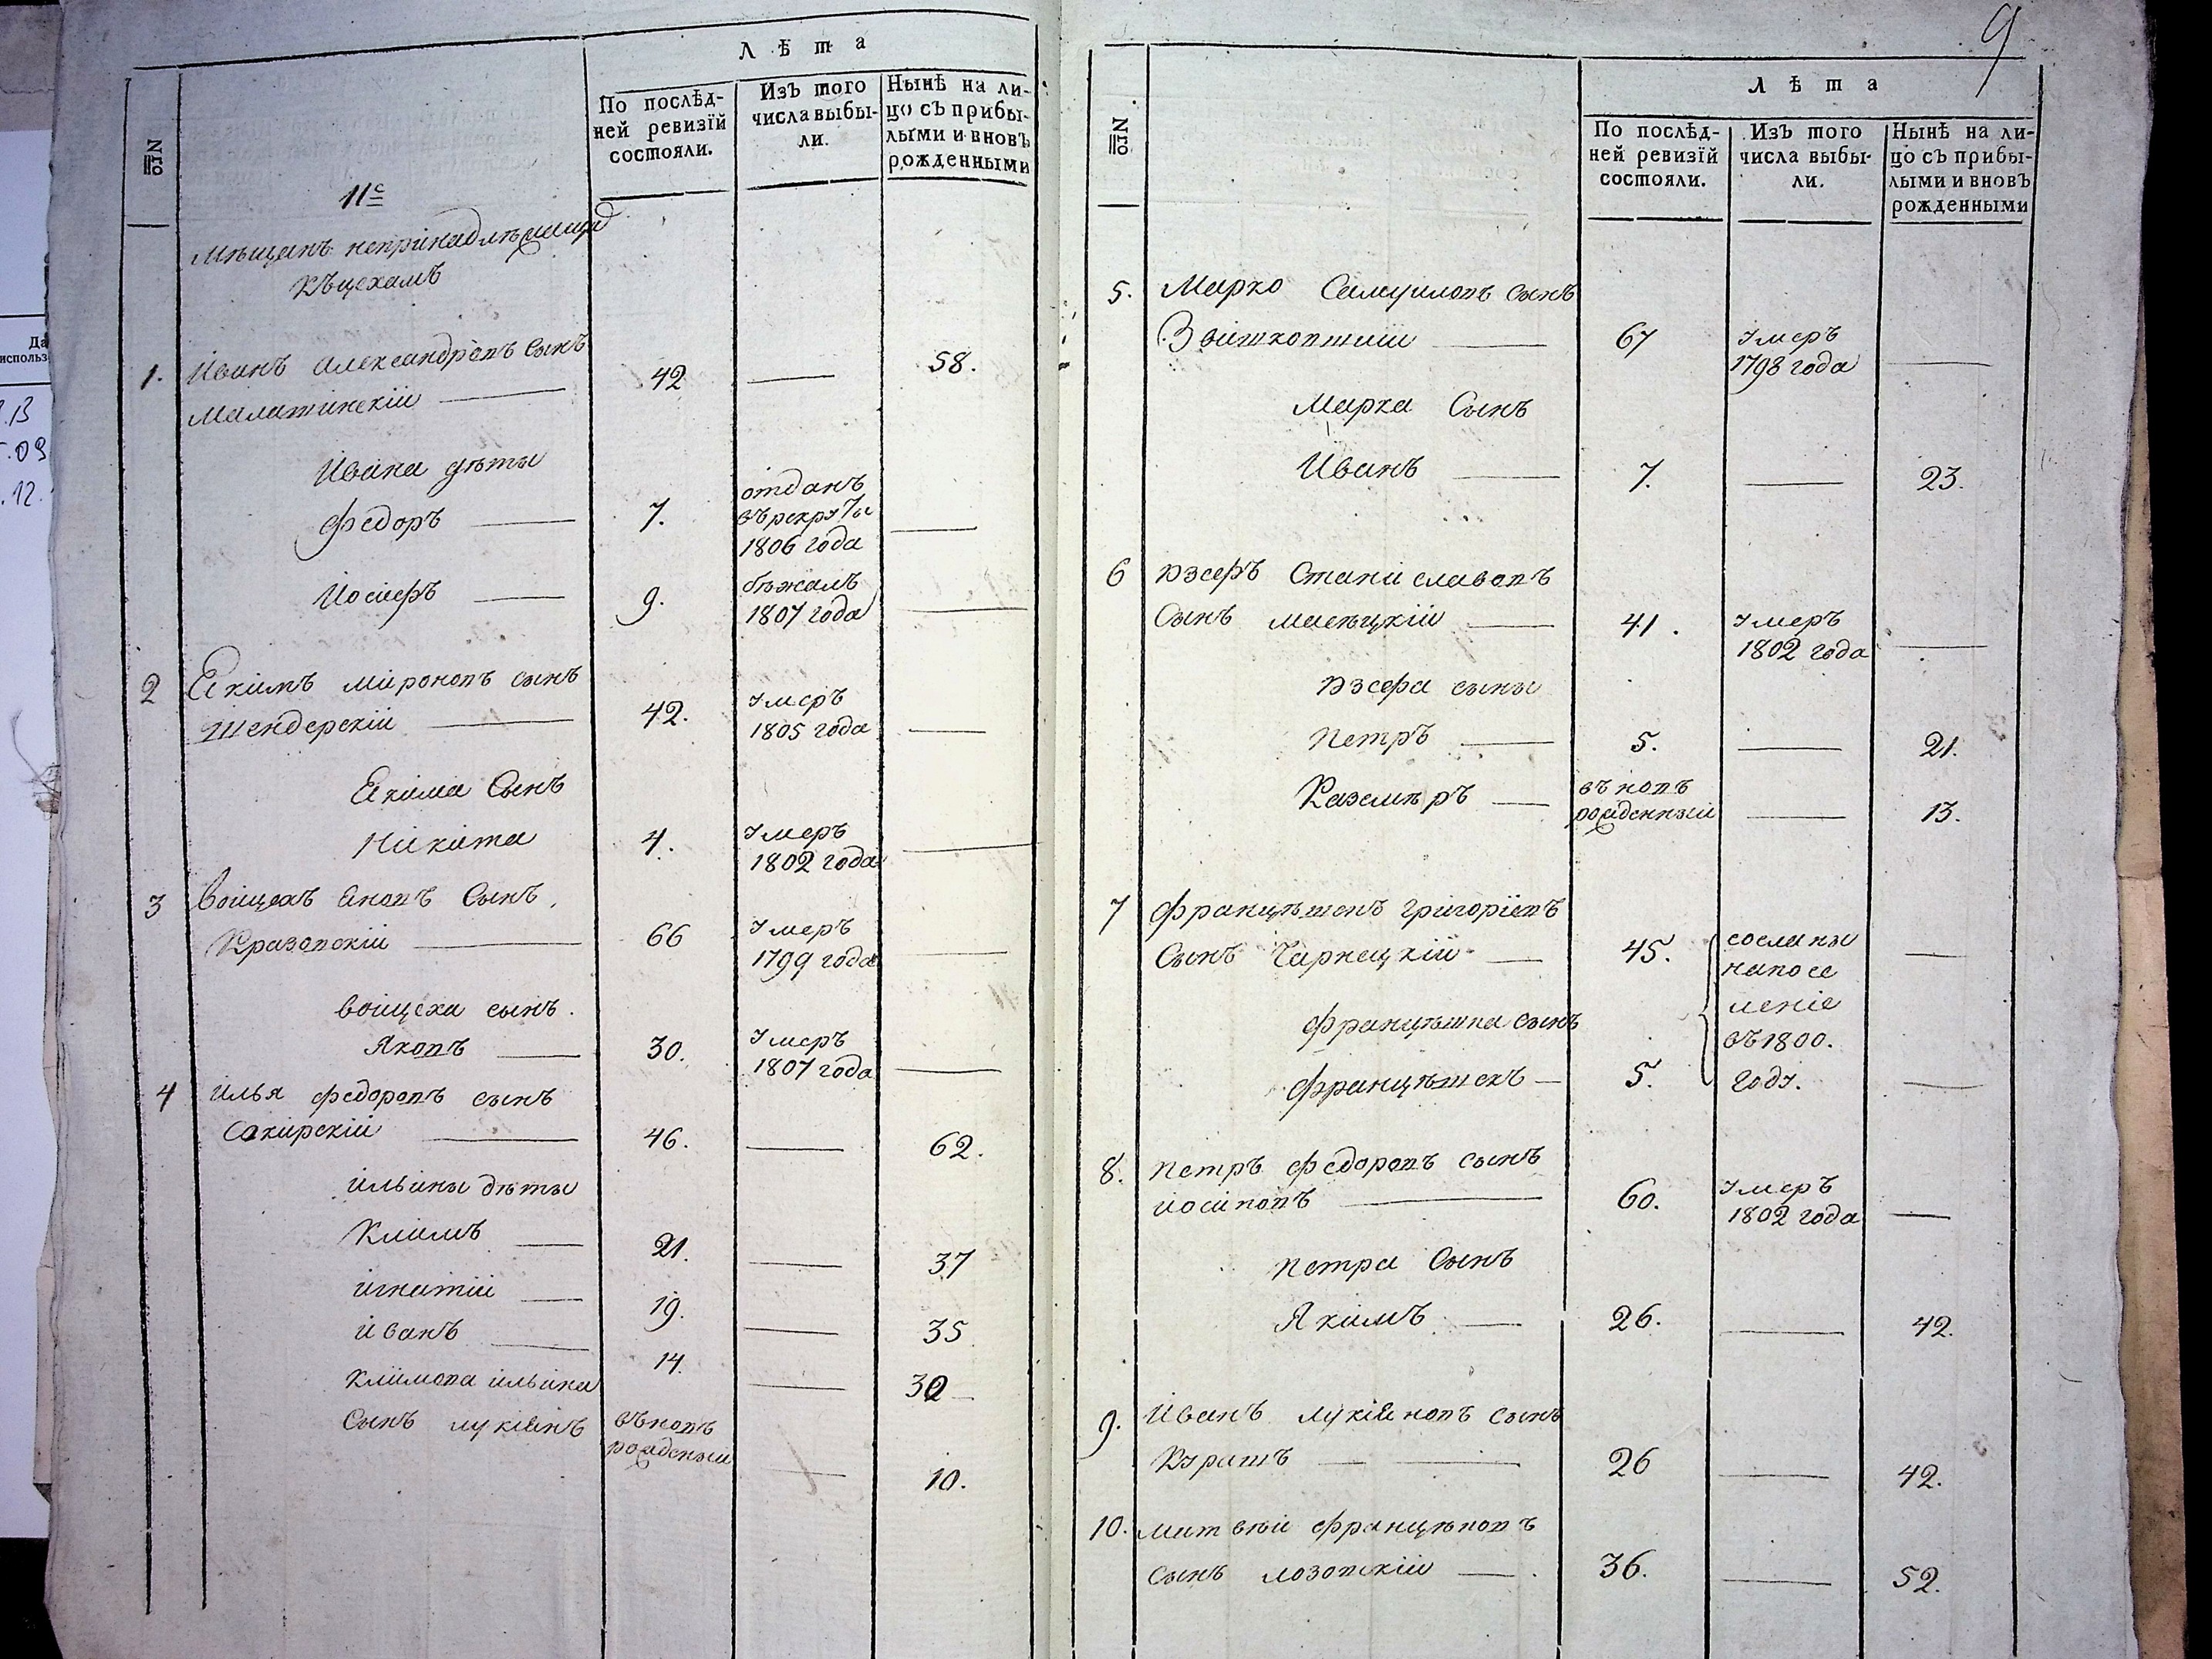 Лѣта
№го
По послѣд-
ней ревизїй
состояли.
Изъ того
числа выбы-
ли.
Нынѣ на ли-
цо съ прибы-
лыми и вновь
рожденными
11е
Мѣщанъ непринадлѣжащих
Къцехамъ
1. Иванъ Александровъ Сынъ
Малатинскій 42 58.
Ивана дѣты
Федоръ 7. отданъ
въ рекруты
1806 года
Иосифъ 9. бѣжалъ
1807 года
2 Екимъ Мироновъ сынъ
Шендерскій 42. Умеръ
1805 года
Екима Сынъ
Никита 4. Умеръ
1802 года
3 Войцехъ Яновъ Сынъ
66 Умеръ
1799 года
Войцеха сынъ.
Яковъ 30. Умеръ
1807 года
4 Илья Федоровъ сынъ
Сакирскій 46. 62.
Ильины дѣты
Климъ 21. 37
Игнатій 19. 35
Иванъ 14. 30
Климова Ильина
Сынъ Лукіянъ въновъ
рожденный 10.
9
Лѣта
№го
По послѣд-
ней ревизїй
состояли.
Изъ того
числа выбы-
ли.
Нынѣ на ли-
цо съ прибы-
лыми и вновь
рожденными
5. Марко Самуиловъ Сынъ
67 Умеръ
1798 года
Марка Сынъ
Иванъ 7. 23.
6 Юзефъ Станиславовъ
Сынъ 41. Умеръ
1802 года
Юзефа сыны
Петръ 5. 21.
Каземѣръ въновъ
рожденный 13.
7 Францѣшекъ Григоріевъ
Сынъ Чарнецкій 45. сосланы
напосе
леніе
въ 1800.
году.
Францѣшка сынъ
Францѣшекъ 5.
8. Петръ Федоровъ сынъ
Иосиповъ 60. Умеръ
1802 года
Петра Сынъ
Якимъ 26. 42.
9. Иванъ Лукіяновъ Сынъ
26 42.
10. Матвѣй Францѣвовъ
Сынъ Лозовскій 36. 52.